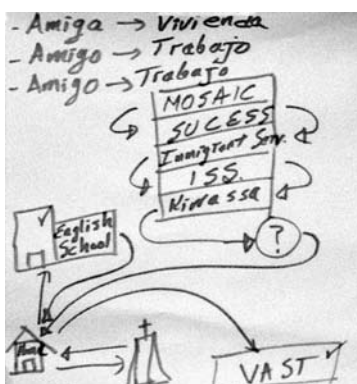 - Amiga → Vivienda
- Amigo → Trabajo
- Amigo → Trabajo
MOSAIC
SUCESS
Immigrant Serv.
ISS.
Kiwassa
?
English
School
Home
VAST